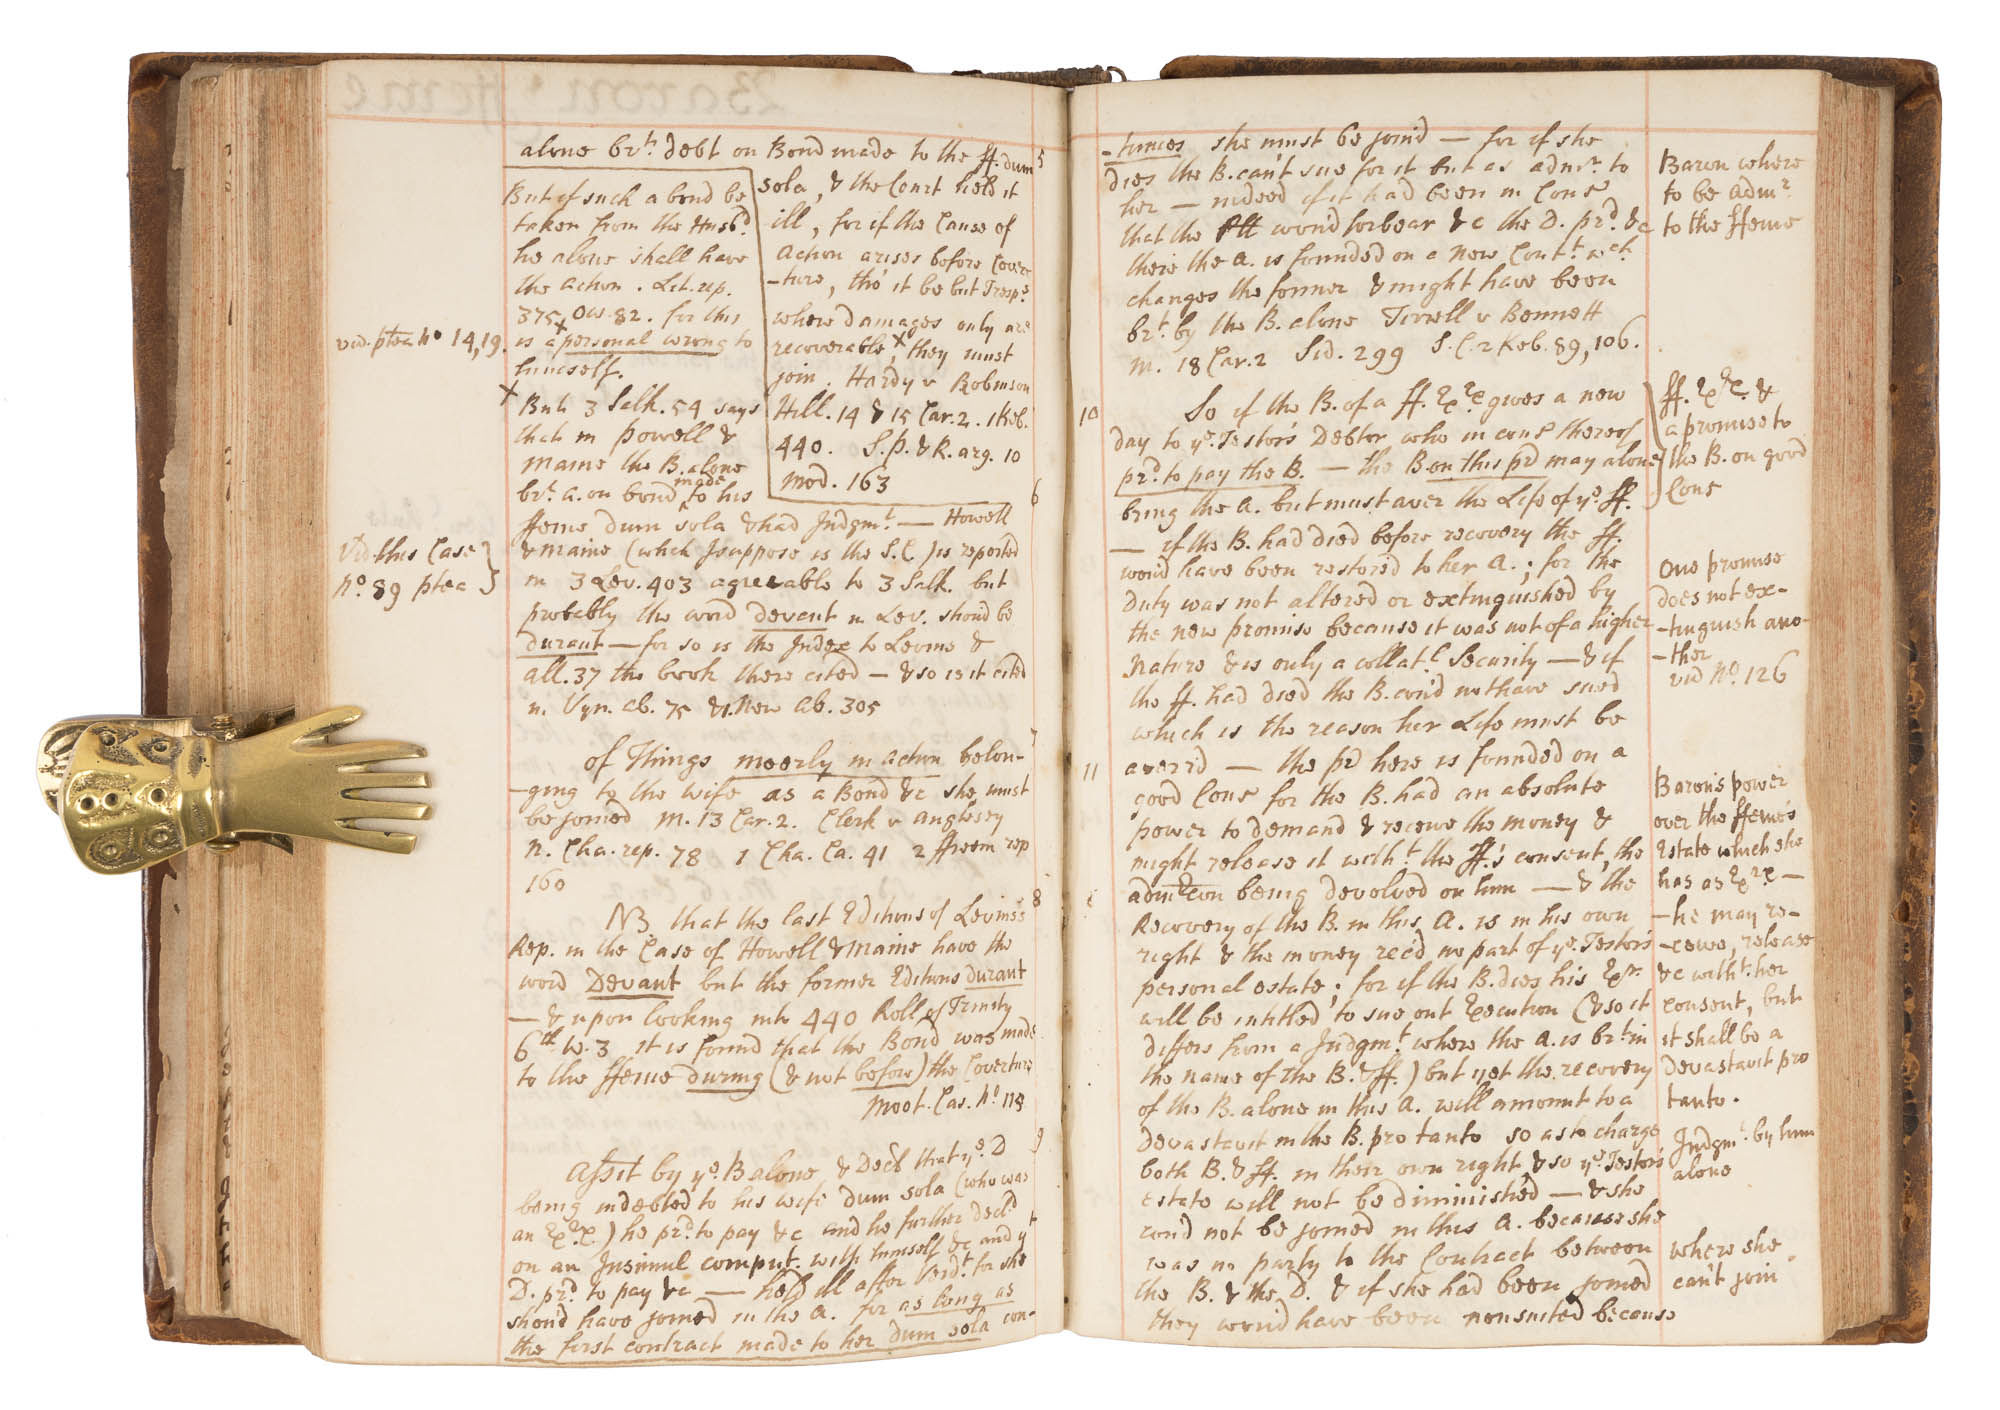 alone brt. debt on Bond made to the ff. dum 5
sola, & the Court held it
ill, for if the Cause of
Action arises before Cover
-ture, tho' it be but Tresps.
where Damages only are
recoverable, x they must
join. Hardy v Robinson
Hill. 14 & 15 Car. 2. 1 Keb.
440. S.P. & R. arg. 10
Mod. 163
But if such a bond be
taken from the Husbd.
he alone shall have
the Action. Lit. rep.
375, Ow. 82. for this
is a x personal wrong to
himself.
vid. ptea no 14, 19.
x But 3 Salk. 54 says
that in Powell &
Maine the B. alone
brt. A. on bond made to his 6
ffeme dum sola & had Judgmt. — Howell
& Maine (which I suppose is the S.C.) is reported
in 3 Lev. 403 agreeable to 3 Salk. but
probably the word devent in Lev. should be
durant — for so is the Index to Levinz &
all. 37 the book there cited — & so is it cited
in Vyn. ab. 75 & 1. New ab. 305
Vid this Case
No. 89 ptea
of Things meerly in action belon- 7
-ging to the wife as a Bond &c she must
be joined M. 13 Car. 2. Clerk v Anglesey
N. Cha. rep. 78 1 Cha. Ca. 41 2 ffreem rep
160
NB that the last Editions of Levinz's 8
Rep. in the Case of Howell & Maine have the
word Devant but the former Editions durant
— & upon looking into 440 Roll of Trinity
6th W. 3 it is found that the Bond was made
to the ffeme during (& not before) the Coverture
Moot. Cas. no 114
Assit by ye. B alone & Decl that ye. D 9
being indebted to his wife dum sola (who was
an Exrx.) he prd. to pay &c and he further decld
on an Insimul comput. with himself &c and yt
D. prd. to pay &c — held ill after Verdt. for she
shou'd have joined in the A. for as long as
the first contract made to her dum sola con-
-tinues she must be join'd — for if she
dies the B. can't sue for it but as admr. to
her — indeed if it had been in Cons
that the Plt wou'd forbear &c the D. prd. &c
there the A. is founded on a new Contt. wch.
changes the former & might have been
brt. by the B. alone Tirrell v Bennett
M. 18 Car. 2 Sid. 299 S.C. 2 Keb. 89, 106.
Baron where
to be Admr.
to the ffeme
10 So if the B. of a ff. Exrx gives a new
day to ye. Testor's Debtor who in cons thereof
prd. to pay the B. — the B. on this prd may alone
bring the A. but must aver the Life of ye. ff.
— if the B. had died before recovery the ff.
wou'd have been restor'd to her A.; for the
Duty was not altered or extinguished by
the new promise because it was not of a higher
Nature & is only a collatl. Security — & if
the ff. had died the B. cou'd not have sued
which is the reason her Life must be
ff. Exrx. &
a promise to
the B. on good
Cons
One promise
does not ex-
-tinguish ano-
-ther
vid No. 126
11 averr'd — the prd here is founded on a
good Cons for the B. had an absolute
power to demand & receive the money &
might release it witht. the ff.'s consent, the
admcon being devolved on him — & the
Recovery of the B. in this A. is in his own
right & the money rec'd no part of ye. Testor's
personal estate; for if the B. dies his Exr.
will be intitled to sue out Execution (& so it
differs from a Judgmt. where the A. is brt. in
the name of the B. & ff.) but yet the recovery
of the B. alone in this A. will amount to a
Devastavit in the B. pro tanto so as to charge
both B. & ff. in their own right & so ye. Testor's
Estate will not be diminish'd — & she
cou'd not be joined in this A. because she
was no party to the Contract between
the B. & the D. & if she had been joined
they wou'd have been nonsuited because
Baron's power
over the ffeme's
Estate which she
has as Exrx —
— he may re-
-ceive, release
&c witht. her
consent, but
it shall be a
Devastavit pro
tanto.
Judgmt. by him
alone
where she
can't join